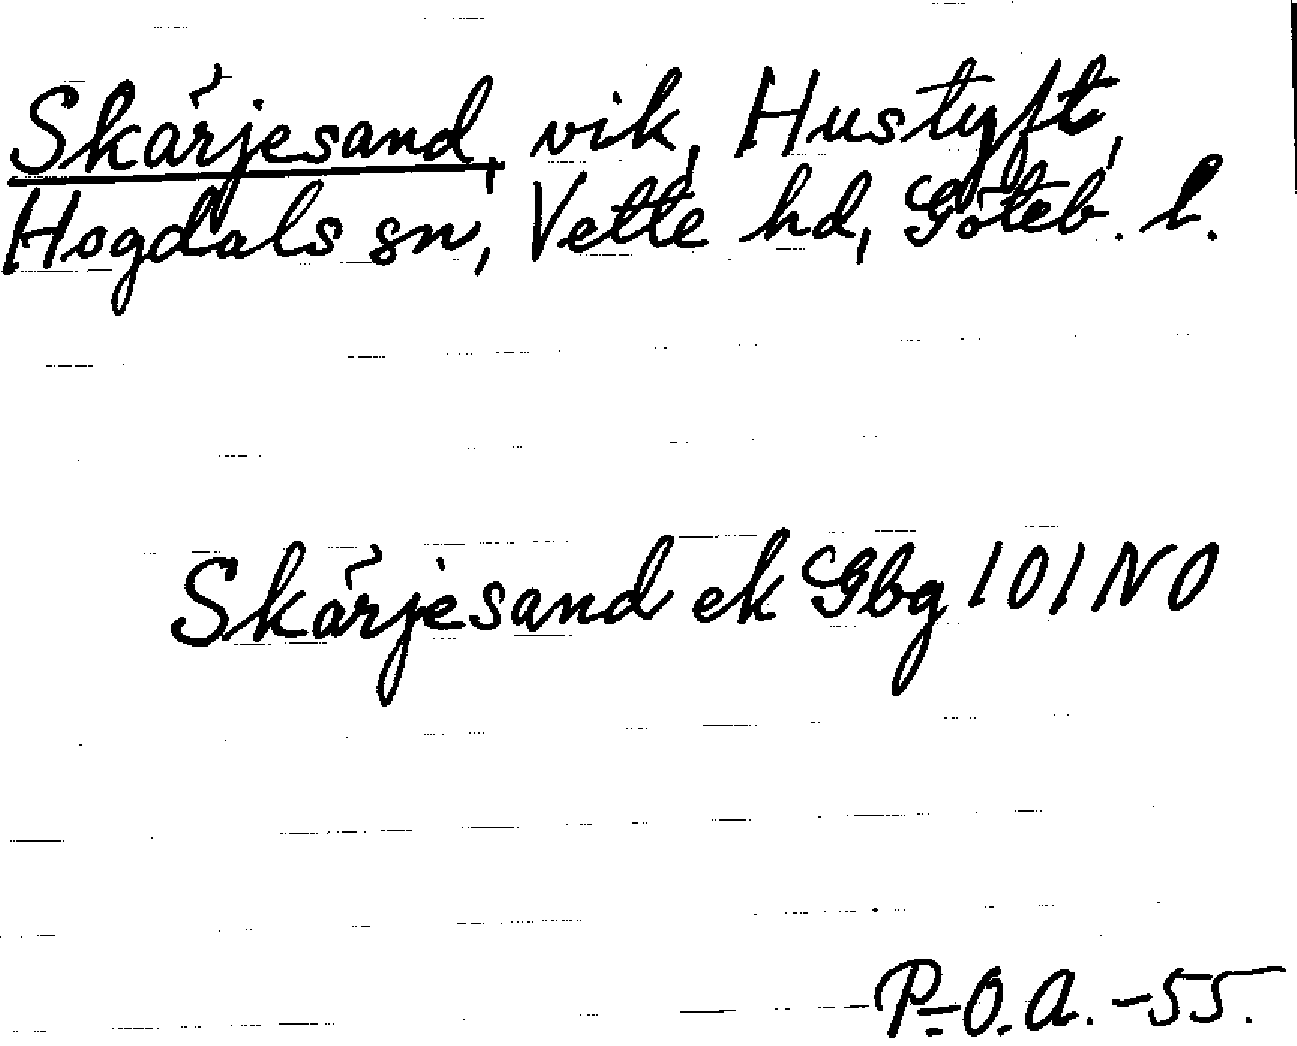 Skärjesand, vik, Hustyft,
Hogdals sn, Vette hd, Göteb. l.
Skärjesand ek Gbg 101 NO
P.-O.A. -55.